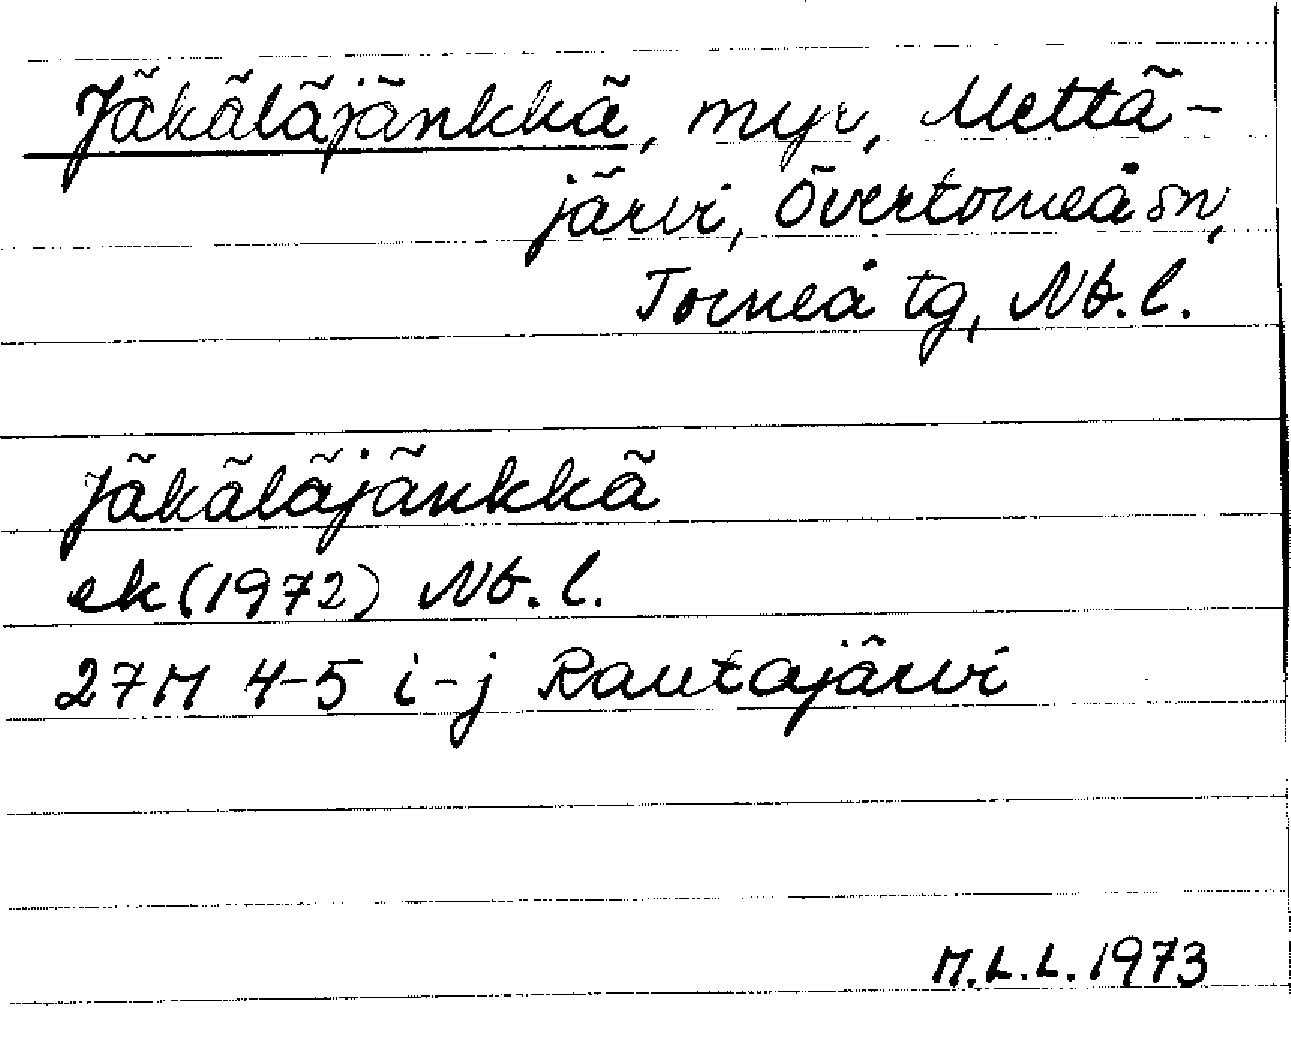 Jäkäläjänkkä, myr, Mettä-
järvi, Övertorneå sn,
Torneå tg, Nb. l.
Jäkäläjänkkä
ek (1972) Nb. l.
27M 4-5 i-j Rautajärvi
M.L.L. 1973